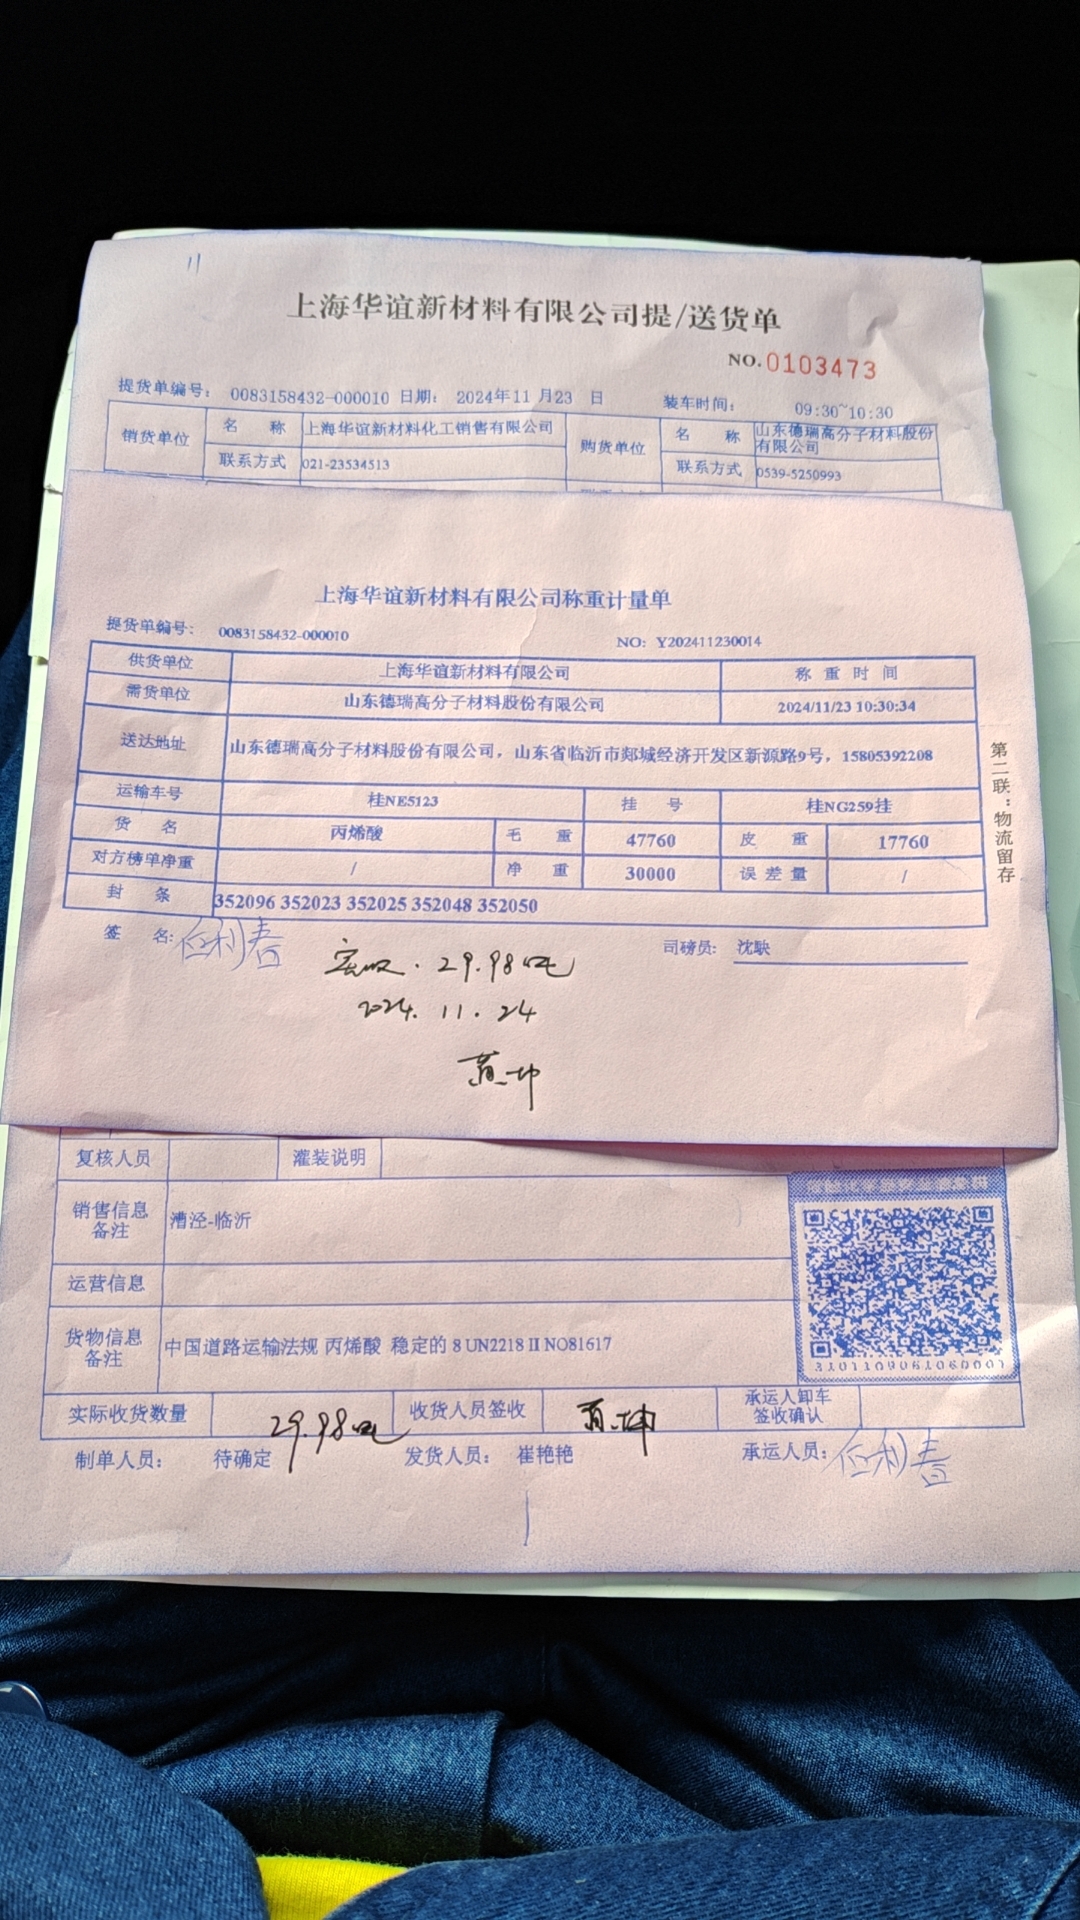 上海华谊新材料有限公司提/送货单
NO.0103473
提货单编号: 0083158432-000010 日期: 2024年11月23 日 装车时间: 09:30~10:30
销货单位 名 称 上海华谊新材料化工销售有限公司 购货单位 名 称 山东德瑞高分子材料股份有限公司
联系方式 021-23534513 联系方式 0539-5250993
上海华谊新材料有限公司称重计量单
提货单编号: 0083158432-000010 NO: Y202411230014
供货单位 上海华谊新材料有限公司 称 重 时 间
需货单位 山东德瑞高分子材料股份有限公司 2024/11/23 10:30:34
送达地址 山东德瑞高分子材料股份有限公司，山东省临沂市郯城经济开发区新源路9号，15805392208
运输车号 桂NE5123 挂 号 桂NG259挂
货 名 丙烯酸 毛 重 47760 皮 重 17760
对方榜单净重 / 净 重 30000 误差量 /
封 条 352096 352023 352025 352048 352050
签 名: 司磅员: 沈眏
29.98吨
2024. 11. 24
第二联：物流留存
复核人员 灌装说明
销售信息备注 漕泾-临沂
运营信息
货物信息备注 中国道路运输法规 丙烯酸 稳定的 8 UN2218 II NO81617
3101109061060001
实际收货数量 29.98吨 收货人员签收 承运人卸车签收确认
制单人员: 待确定 发货人员: 崔艳艳 承运人员: